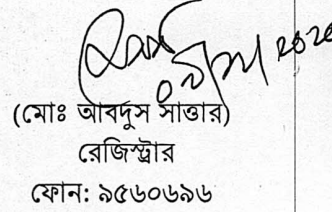 (মোঃ আবদুস সাত্তার)
রেজিস্ট্রার
ফোন: ৯৫৬০৬৯৬